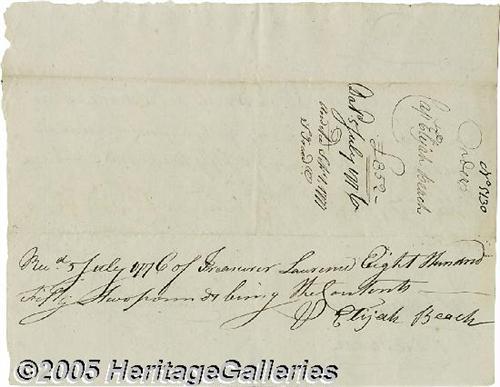 No 5130
Order
Capt Elijah Beach
£852 -
Dat'd 5 July 1776
Rec.d 5 July 1776 of Treasurer Lawrence Eight Hundred
Fifty Two pounds being the Contents
Elijah Beach
© 2005 HeritageGalleries